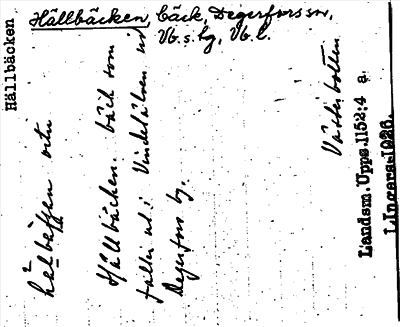 Hällbäcken
Hällbäcken, bäck, Degerfors sn,
Vb.s. lg, Vb. l.
Hällbäcken. bäck som
faller ut i Vindelälven ur
Degerfors by.
Västerbotten
Landsm. Upps. 1152:4 a.
L. Ingers. 1926.